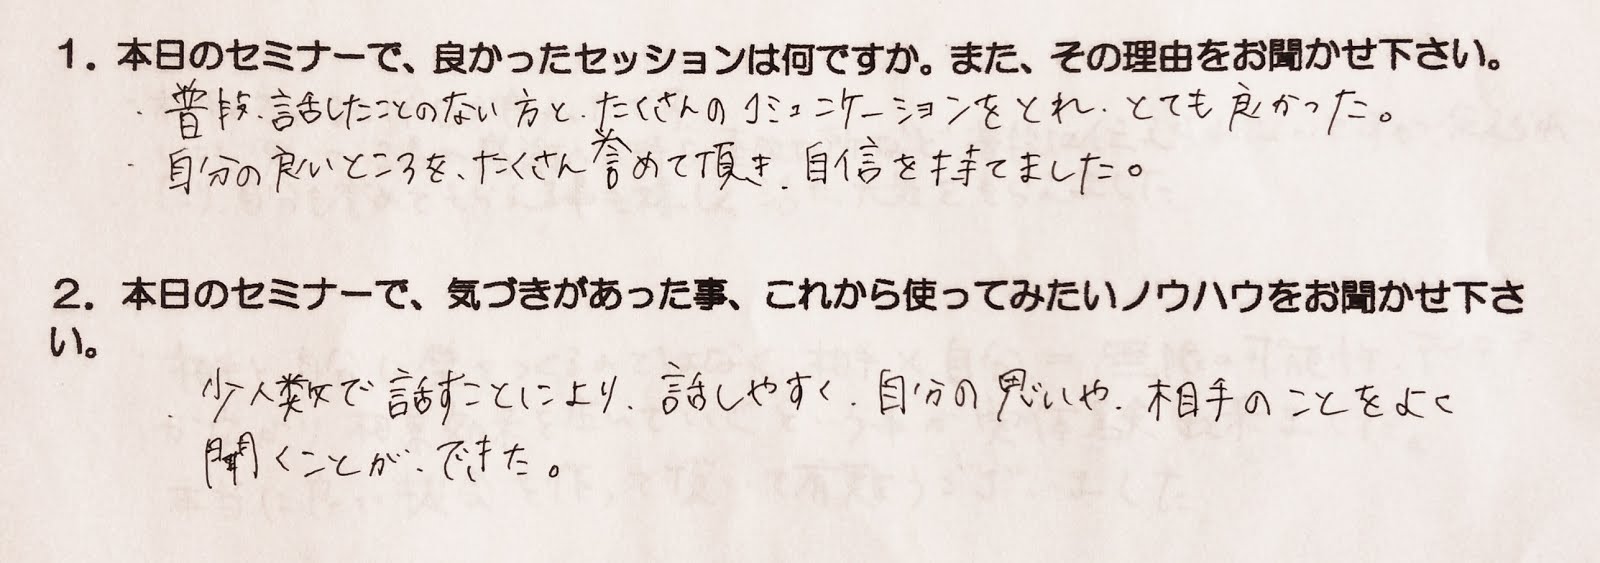 1. 本日のセミナーで、良かったセッションは何ですか。また、その理由をお聞かせ下さい。
・普段、話したことのない方と、たくさんのコミュニケーションをとれ、とても良かった。
・自分の良いところを、たくさん誉めて頂き、自信を持てました。
2. 本日のセミナーで、気づきがあった事、これから使ってみたいノウハウをお聞かせ下さ
い。
・少人数で話すことにより、話しやすく、自分の思いや、相手のことをよく
聞くことが、できた。